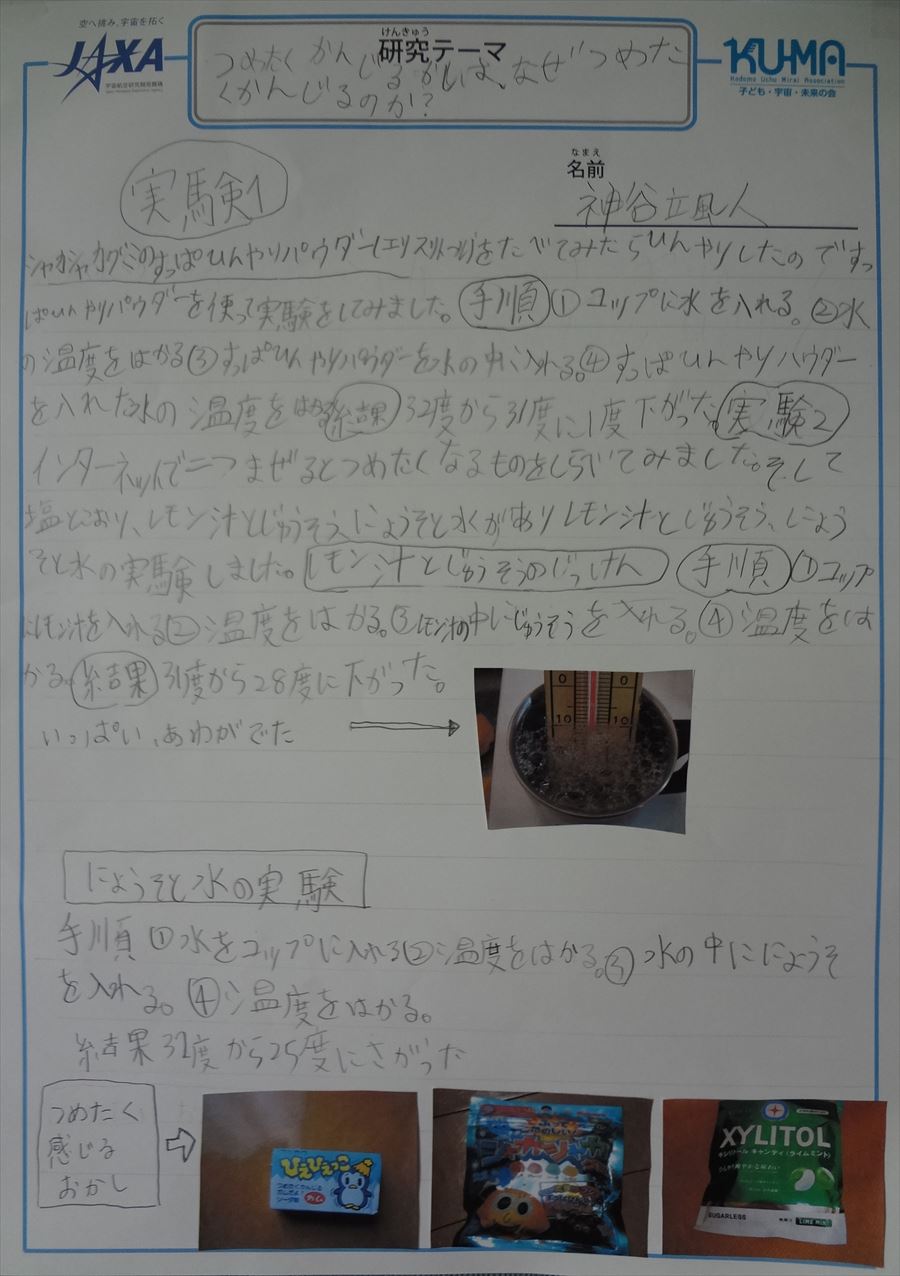 空へ挑み、宇宙を拓く
JAXA
宇宙航空研究開発機構
けんきゅう
研究テーマ
つめたくかんじるかしは、なぜつめた
くかんじるのか?
KUMA
Kodomo Uchu Mirai Association
子ども・宇宙・未来の会
実験1
なまえ
名前
神谷立風人
シャカシャカグミのすっぱひんやりパウダー(エリスリトール)をたべてみたらひんやりしたのですっ
ぱひんやりパウダーを使って実験をしてみました。手順①コップに水を入れる。②水
の温度をはかる③すっぱひんやりパウダーを水の中に入れる。④すっぱひんやりパウダー
を入れた水の温度をはかる結果32度から31度に1度下がった。実験2
インターネットで二つまぜるとつめたくなるものをしらべてみました。そして
塩とこおり、レモン汁とじゅうそう、にょうそと水がありレモン汁とじゅうそう、にょう
そと水の実験しました。レモン汁とじゅうそうのじっけん 手順①コップ
にレモン汁を入れる②温度をはかる。③レモン汁の中にじゅうそうを入れる。④温度をは
かる。結果31度から28度に下がった。
いっぱい、あわがでた
0 0
10 10
にょうそと水の実験
手順①水をコップに入れる②温度をはかる。③水の中ににょうそ
を入れる。④温度をはかる。
結果32度から25度にさがった
つめたく
感じる
おかし
ひえひえっこ
つめたくかんじる
ソーダ味
XYLITOL
キシリトール キャンディ(ライムミント)
SUGARLESS
LIME MINT